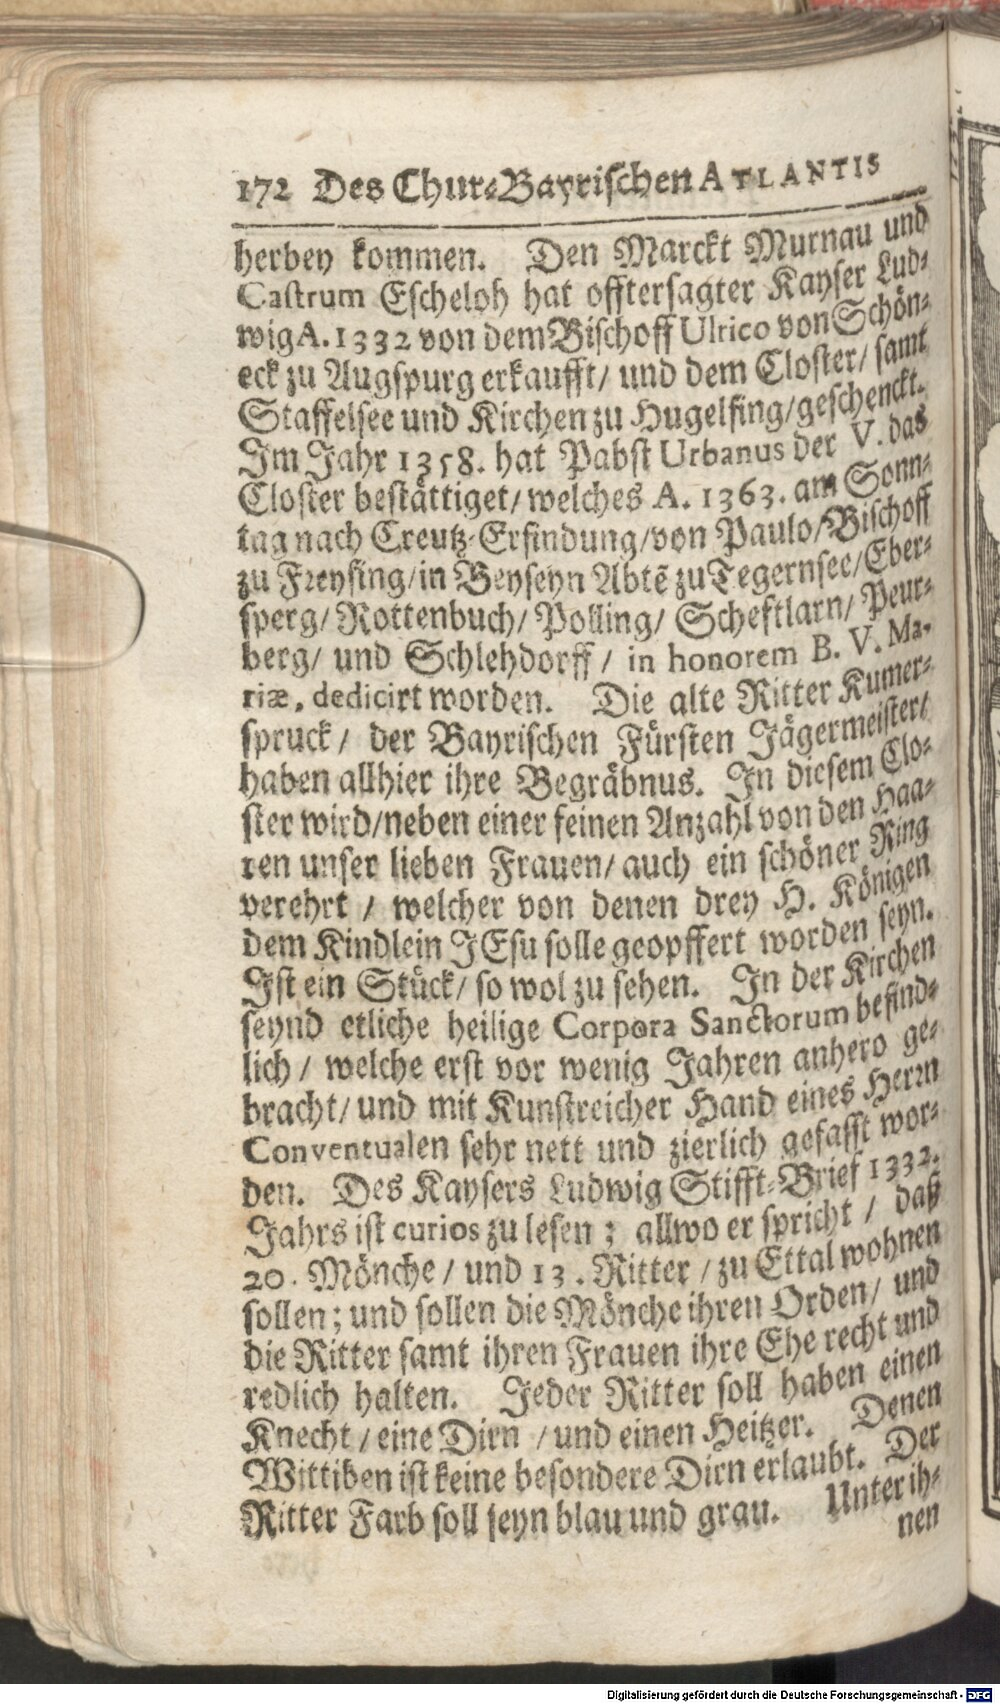 172 Des Chur-Bayrischen ATLANTIS
herbey kommen. Den Marckt Murnau und
Castrum Escheloh hat offtersagter Kayser Lud-
wig A. 1332 von dem Bischoff Ulrico von Schön-
eck zu Augspurg erkaufft/ und dem Closter/ samt
Staffelsee und Kirchen zu Hugelfing/ geschenckt.
Im Jahr 1358. hat Pabst Urbanus der V. das
Closter bestättiget/ welches A. 1363. am Sonn-
tag nach Creutz-Erfindung/ von Paulo/ Bischoff
zu Freysing/ in Beyseyn Abtẽ zu Tegernsee/ Eber-
sperg/ Rottenbuch/ Polling/ Scheftlarn/ Peur-
berg/ und Schlehdorff / in honorem B. V. Ma-
riæ, dedicirt worden. Die alte Ritter Kumer-
spruck / der Bayrischen Fürsten Jägermeister/
haben allhier ihre Begräbnus. In diesem Clo-
ster wird/ neben einer feinen Anzahl von den Haa-
ren unser lieben Frauen/ auch ein schöner Ring
verehrt / welcher von denen drey H. Königen
dem Kindlein JEsu solle geopffert worden seyn.
Ist ein Stück/ so wol zu sehen. In der Kirchen
seynd etliche heilige Corpora Sanctorum befind-
lich / welche erst vor wenig Jahren anhero ge-
bracht/ und mit Kunstreicher Hand eines Herrn
Conventualen sehr nett und zierlich gefasst wor-
den. Des Kaysers Ludwig Stifft-Brief 1332.
Jahrs ist curios zu lesen ; allwo er spricht / daß
20. Mönche / und 13. Ritter / zu Ettal wohnen
sollen ; und sollen die Mönche ihren Orden/ und
die Ritter samt ihren Frauen ihre Ehe recht und
redlich halten. Jeder Ritter soll haben einen
Knecht / eine Dirn / und einen Heitzer. Denen
Wittiben ist keine besondere Dirn erlaubt. Der
Ritter Farb soll seyn blau und grau. Unter ih-
nen
Digitalisierung gefördert durch die Deutsche Forschungsgemeinschaft - DFG